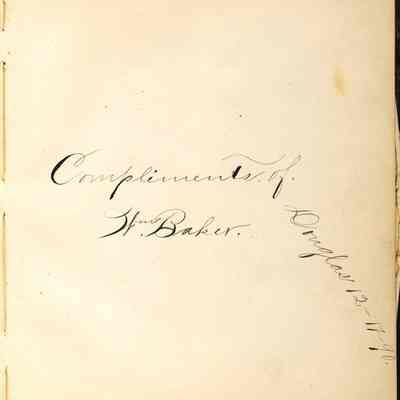 Compliments of.
Wm. Baker.
Douglas 12-17-90.